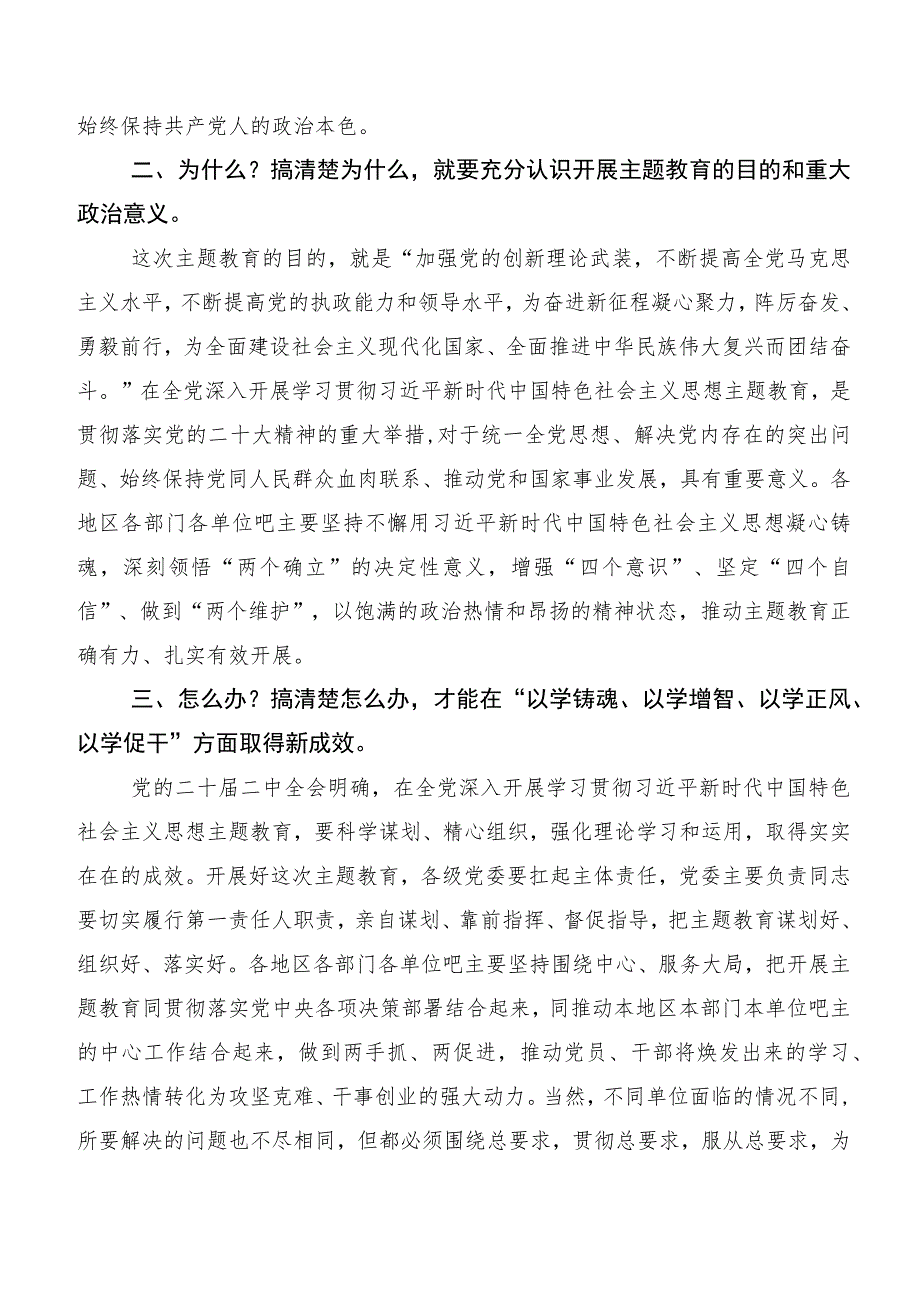 始终保持共产党人的政治本色。
二、为什么？搞清楚为什么，就要充分认识开展主题教育的目的和重大
政治意义。
这次主题教育的目的，就是“加强党的创新理论武装，不断提高全党马克思
主义水平，不断提高党的执政能力和领导水平，为奋进新征程凝心聚力，踔厉奋发、
勇毅前行，为全面建设社会主义现代化国家、全面推进中华民族伟大复兴而团结奋
斗。”在全党深入开展学习贯彻习近平新时代中国特色社会主义思想主题教育，是
贯彻落实党的二十大精神的重大举措,对于统一全党思想、解决党内存在的突出问
题、始终保持党同人民群众血肉联系、推动党和国家事业发展，具有重要意义。各
地区各部门各单位吧主要坚持不懈用习近平新时代中国特色社会主义思想凝心铸
魂，深刻领悟“两个确立”的决定性意义，增强“四个意识”、坚定“四个自
信”、做到“两个维护”，以饱满的政治热情和昂扬的精神状态，推动主题教育正
确有力、扎实有效开展。
三、怎么办？搞清楚怎么办，才能在“以学铸魂、以学增智、以学正风、
以学促干”方面取得新成效。
党的二十届二中全会明确，在全党深入开展学习贯彻习近平新时代中国特色
社会主义思想主题教育，要科学谋划、精心组织，强化理论学习和运用，取得实实
在在的成效。开展好这次主题教育，各级党委要扛起主体责任，党委主要负责同志
要切实履行第一责任人职责，亲自谋划、靠前指挥、督促指导，把主题教育谋划好、
组织好、落实好。各地区各部门各单位吧主要坚持围绕中心、服务大局，把开展主
题教育同贯彻落实党中央各项决策部署结合起来，同推动本地区本部门本单位吧主
的中心工作结合起来，做到两手抓、两促进，推动党员、干部将焕发出来的学习、
工作热情转化为攻坚克难、干事创业的强大动力。当然，不同单位面临的情况不同，
所要解决的问题也不尽相同，但都必须围绕总要求，贯彻总要求，服从总要求，为